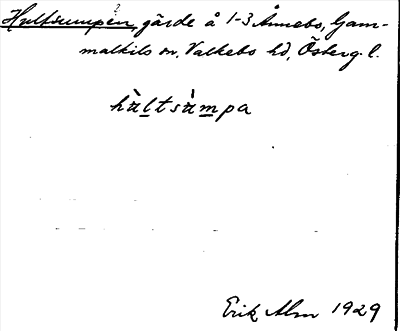 Hultsumpen, gärde å 1-3 Ånnebo, Gam-
malkils sn, Valkebo hd, Österg. l.
hùltsùmpa
Erik Alm 1929